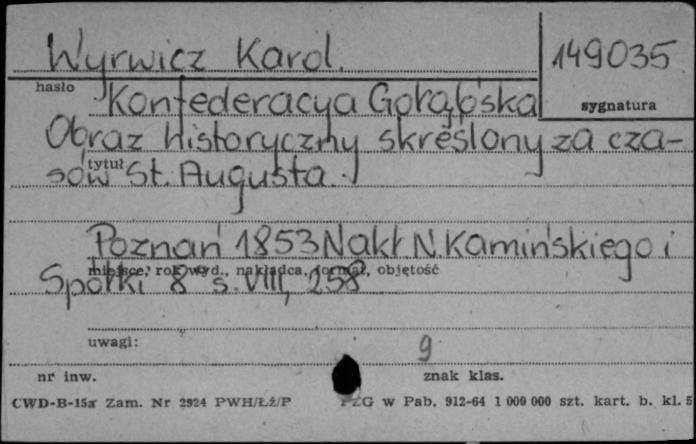 Wyrwicz Karol.
149035
hasło
sygnatura
Konfederacya Gołąbska
Obraz historyczny skreślony za cza-
tytuł
sów St. Augusta.
Poznań 1853 Nakł N. Kamińskiego i
miejsce, rok wyd., nakładca, format, objętość
Spółki 8° s. VIII, 258
uwagi:
9
nr inw.
znak klas.
CWD-B-15a Zam. Nr 2924 PWH/Łź/P
PZG w Pab. 912-64 1 000 000 szt. kart. b. kl. 5